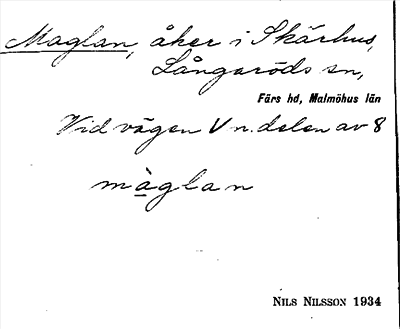 Maglan, åker i Skärhus,
Långaröds sn,
Färs hd, Malmöhus län
Vid vägen V n. delen av 8
màglan
NILS NILSSON 1934